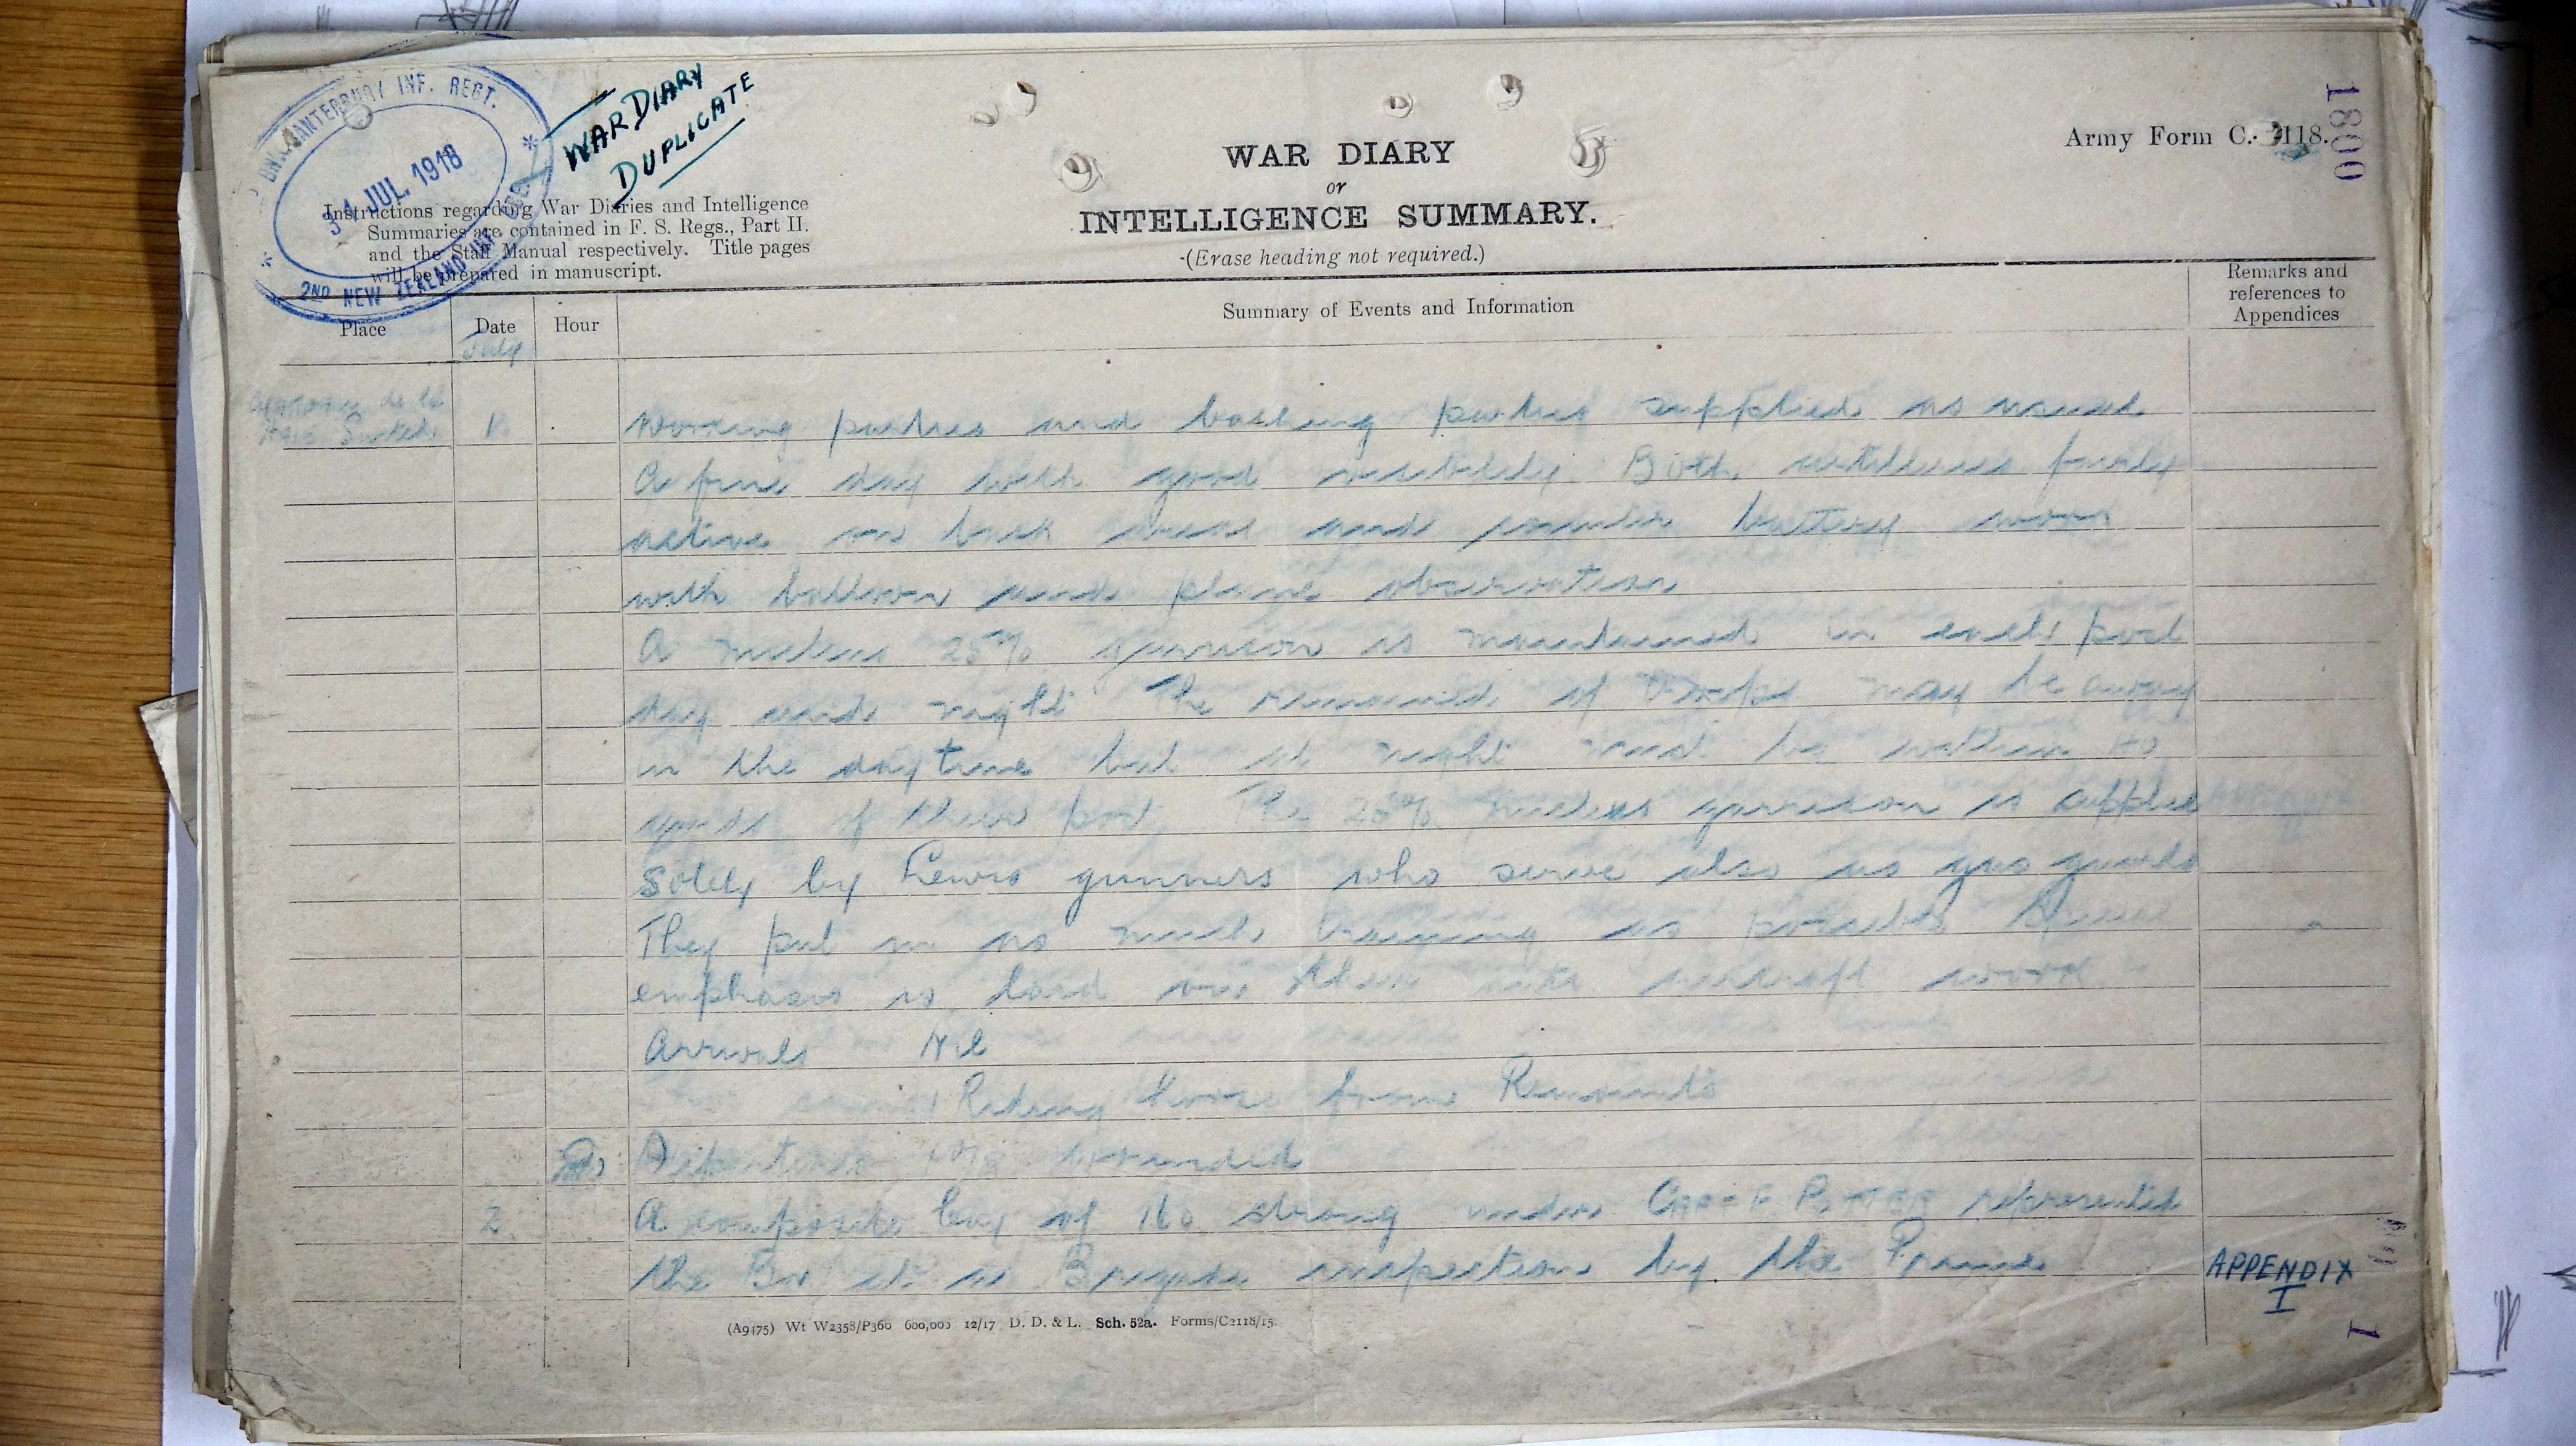 CANTERBURY INF. REGT.
31 JUL. 1918
2ND NEW ZEALAND INF. BDE.
WAR DIARY
DUPLICATE
WAR DIARY
or
INTELLIGENCE SUMMARY.
(Erase heading not required.)
Army Form C. 2118.
1800
Instructions regarding War Diaries and Intelligence
Summaries are contained in F. S. Regs., Part II.
and the Staff Manual respectively. Title pages
will be prepared in manuscript.
Place
Date
Hour
Summary of Events and Information
Remarks and
references to
Appendices
July
de la
Switch
1
Working parties and bathing parties supplied as usual
A fine day with good visibility. Both artilleries fairly
active on back areas and counter battery work
with balloon and plane observation
A nucleus 25% garrison is maintained in each post
day and night The remainder of troops may be away
in the daytime but at night must be within
yards of their post. The 25% nucleus garrison is supplied
solely by Lewis gunners who serve also as gas guards
They put in as much training as possible
emphasis is laid on aircraft work
Arrivals Nil
1 Riding Horse from Remounts
Departures wounded
2
A composite Coy of 160 strong under represented
the Bn at a Brigade inspection by the Prime
APPENDIX
I
(A9475) Wt W2358/P360 600,000 12/17 D. D. & L. Sch. 52a. Forms/C2118/15.
1